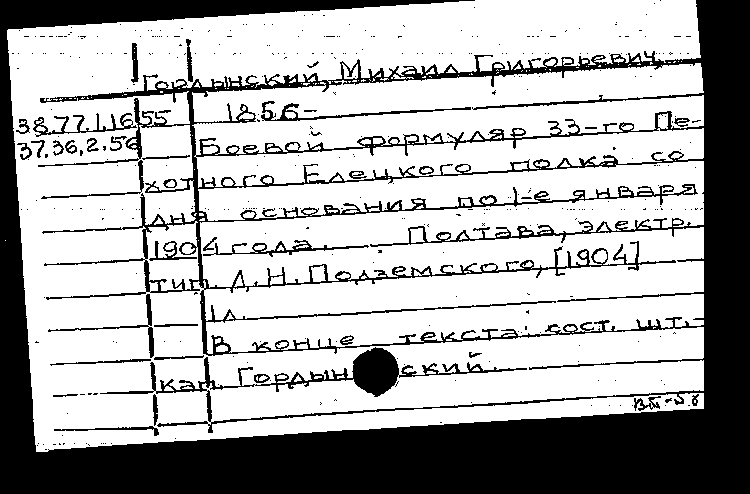 Гордынский, Михаил Григорьевич,
38.77.1.1655 1856-
37.36.2.56 Боевой формуляр 33-го Пе-
хотного Елецкого полка со
дня основания по 1-е января
1904 года. Полтава, электр.
тип. Д. Н. Подземского, [1904]
1 л.
В конце текста: сост. шт.-
кап. Гордынский.